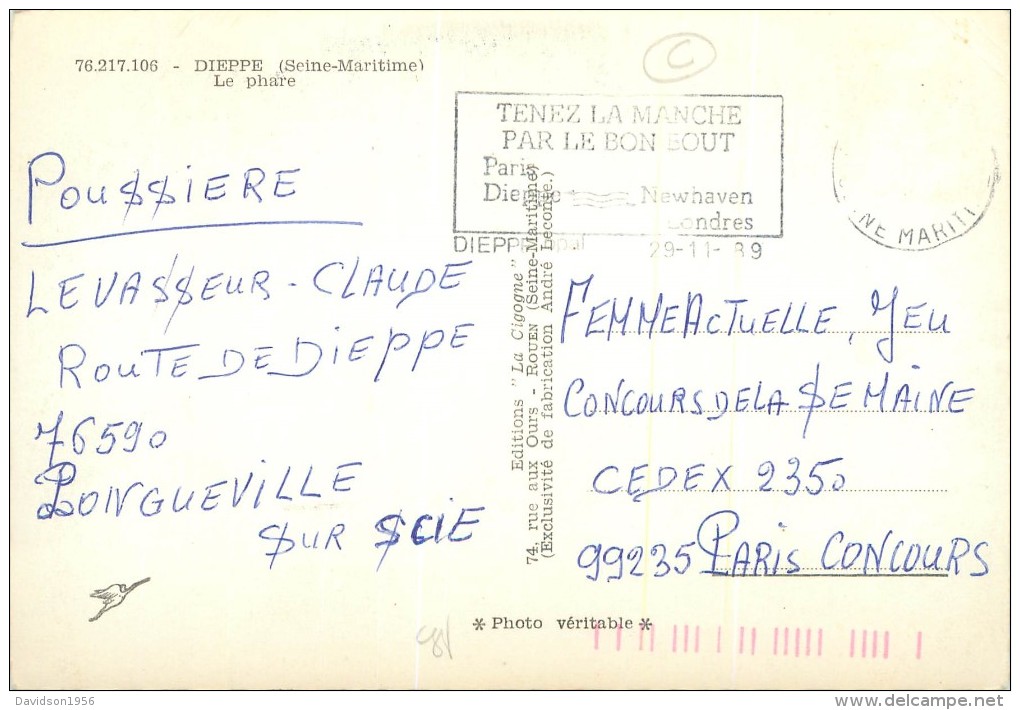 76.217.106 - DIEPPE (Seine-Maritime)
Le phare
C
TENEZ LA MANCHE
PAR LE BON BOUT
Paris
Dieppe Newhaven
Londres
DIEPPE ppal 29-11- 89
NE MARITI
POUSSIERE
LEVASSEUR - CLAUDE
ROUTE DE DIEPPE
76590
LONGUEVILLE
SUR SCIE
Editions "La Cigogne"
74, rue aux Ours - ROUEN (Seine-Maritime)
(Exclusivité de fabrication André Leconte.)
FEMME ACTUELLE, JEU
CONCOURS DE LA SEMAINE
CEDEX 2350
99235 PARIS CONCOURS
* Photo véritable *
Davidson1956
www.delcampe.net